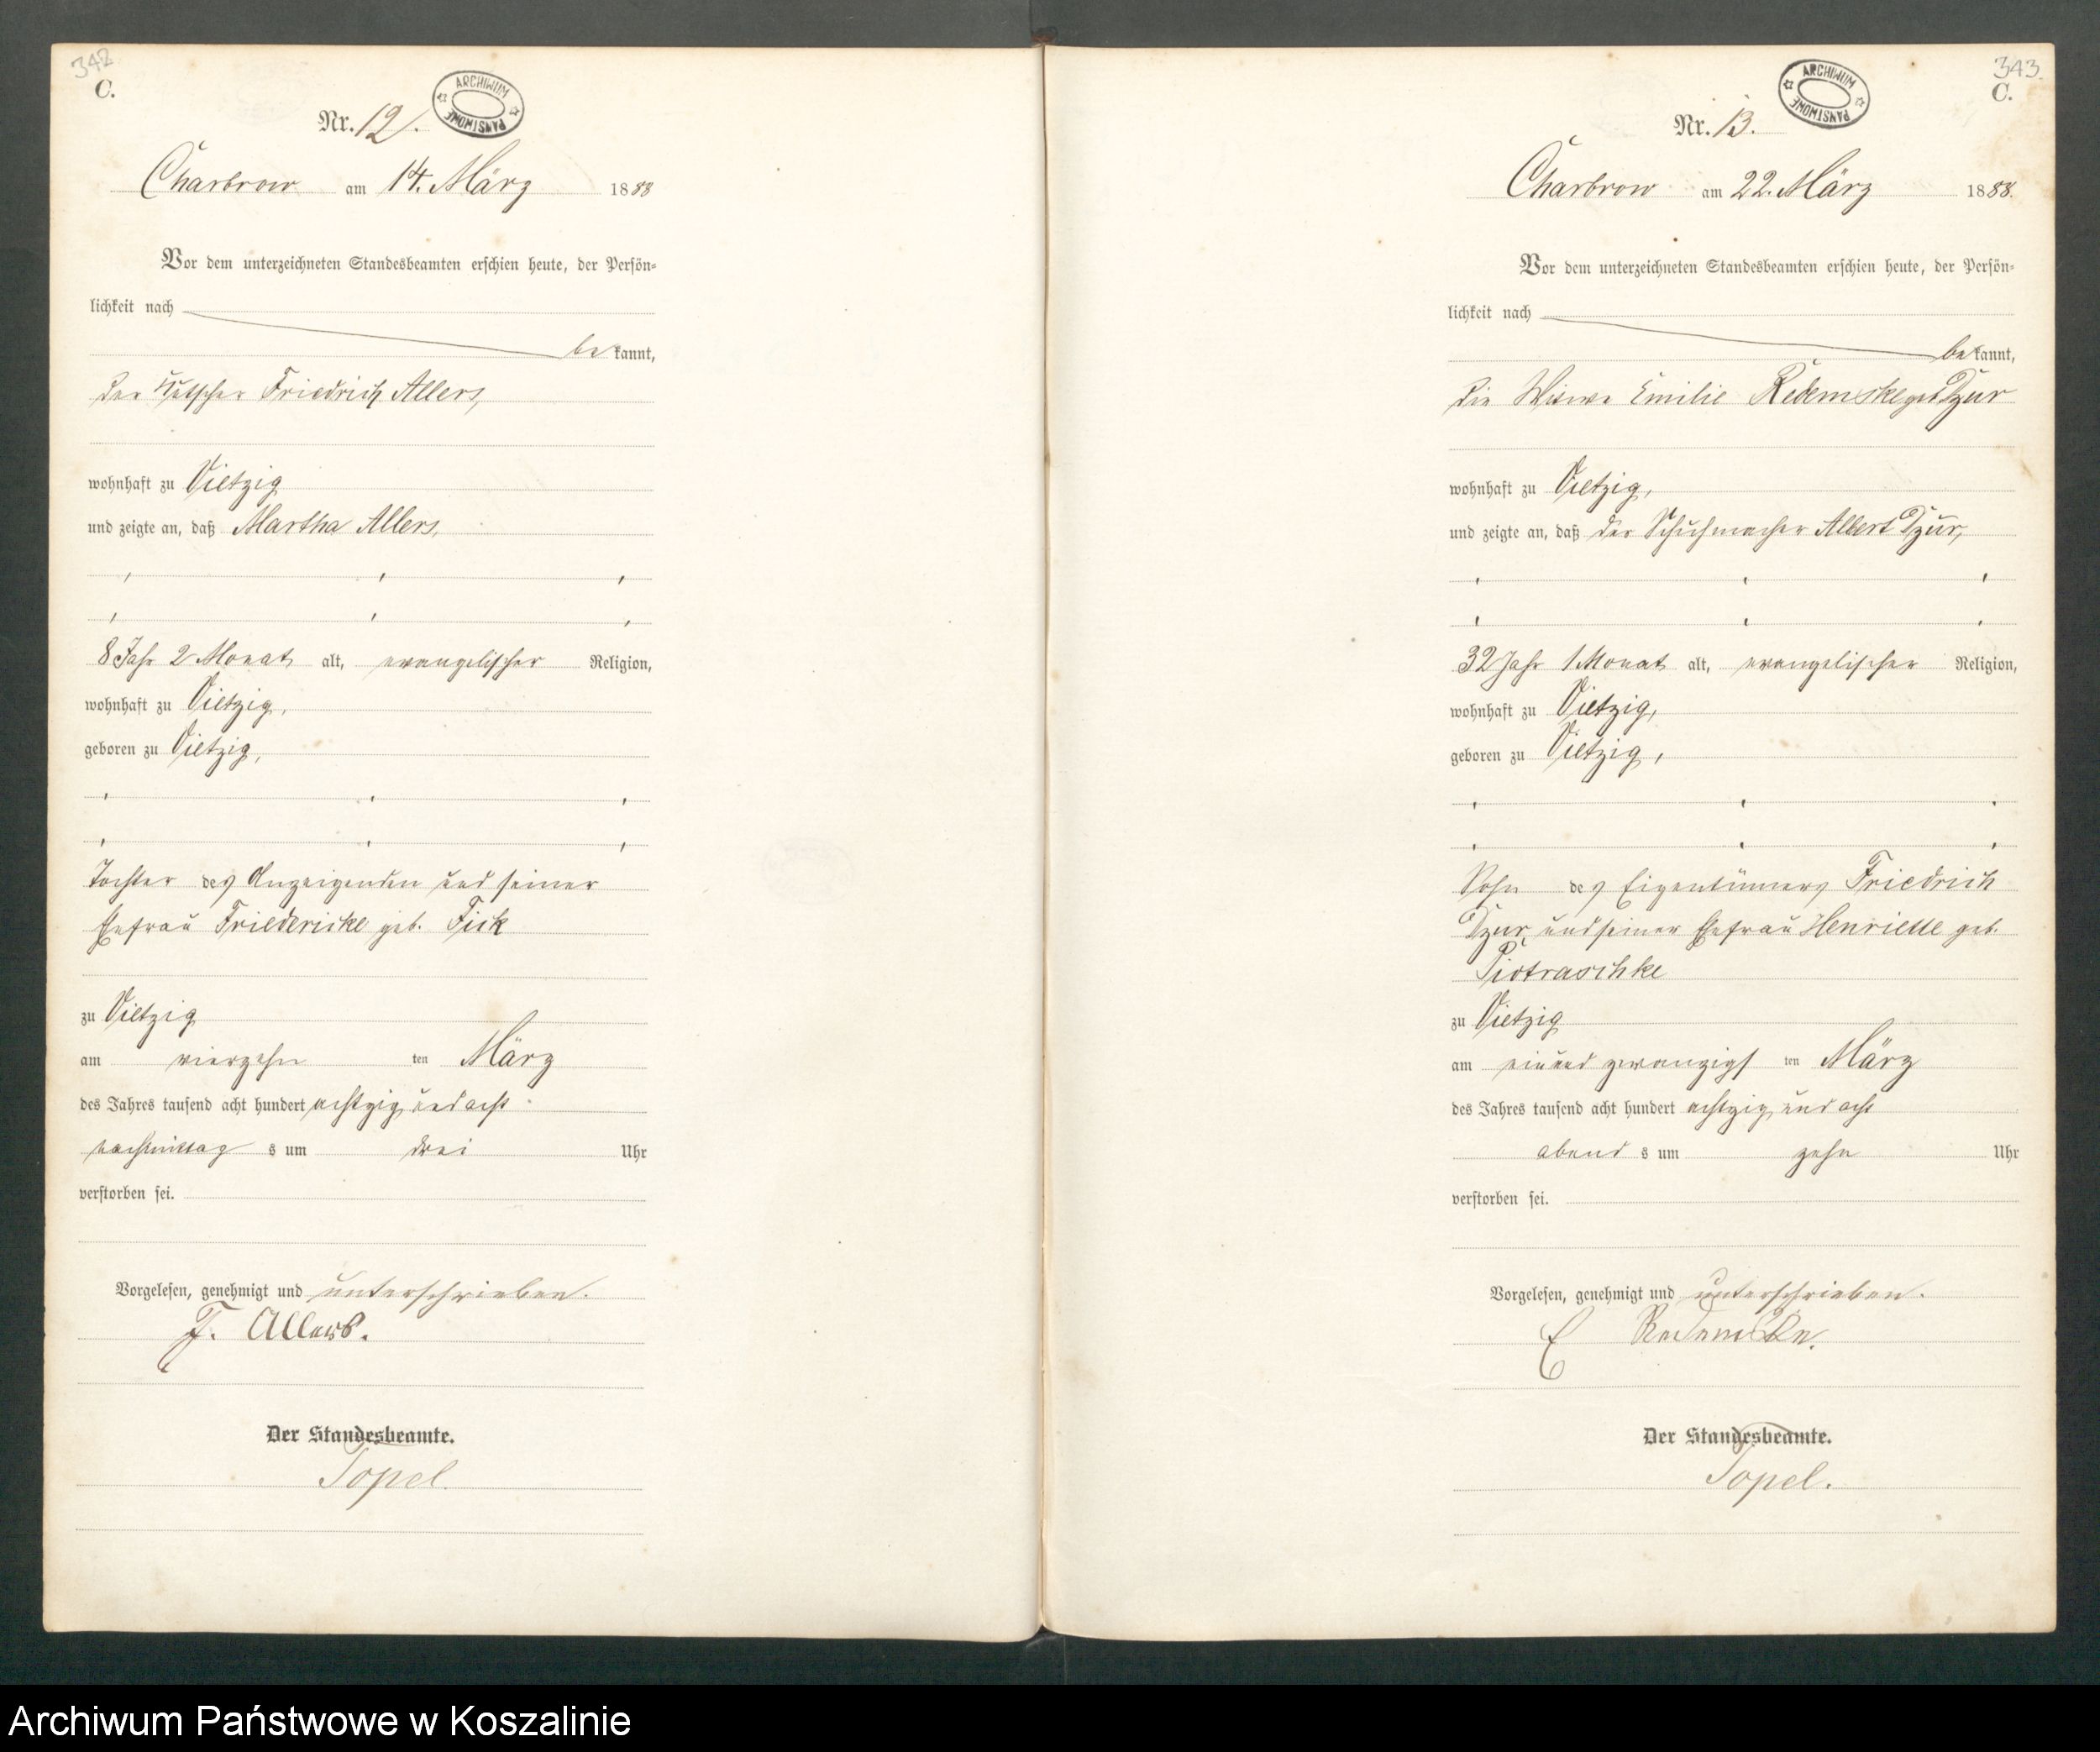 342
C.
ARCHIWUM PAŃSTWOWE
Nr. 12.
Charbrow am 14. März 1888
Vor dem unterzeichneten Standesbeamten erschien heute, der Persön-
lichkeit nach
bekannt,
der Friedrich Allers,
wohnhaft zu Vietzig
und zeigte an, daß Martha Allers,
8 Jahr 2 Monat alt, evangelischer Religion,
wohnhaft zu Vietzig,
geboren zu Vietzig,
Tochter des Anzeigenden und seiner
Ehefrau Friedericke geb. Fick
zu Vietzig
am vierzehn ten März
des Jahres tausend acht hundert achtzig und acht
nachmittags um drei Uhr
verstorben sei.
Vorgelesen, genehmigt und unterschrieben.
F. Allers.
Der Standesbeamte.
Topel.
343.
C.
ARCHIWUM PAŃSTWOWE
Nr. 13.
Charbrow am 22. März 1888.
Vor dem unterzeichneten Standesbeamten erschien heute, der Persön-
lichkeit nach
bekannt,
die Witwe Emilie Redemske geb. Dzur
wohnhaft zu Vietzig,
und zeigte an, daß der Schuhmacher Albert Dzur,
32 Jahr 1 Monat alt, evangelischer Religion,
wohnhaft zu Vietzig,
geboren zu Vietzig,
Sohn des Eigentümers Friedrich
Dzur und seiner Ehefrau Henriette geb.
Piotraschke
zu Vietzig
am einund zwanzigsten März
des Jahres tausend acht hundert achtzig und acht
abends um zehn Uhr
verstorben sei.
Vorgelesen, genehmigt und unterschrieben.
E Redemske.
Der Standesbeamte.
Topel.
Archiwum Państwowe w Koszalinie